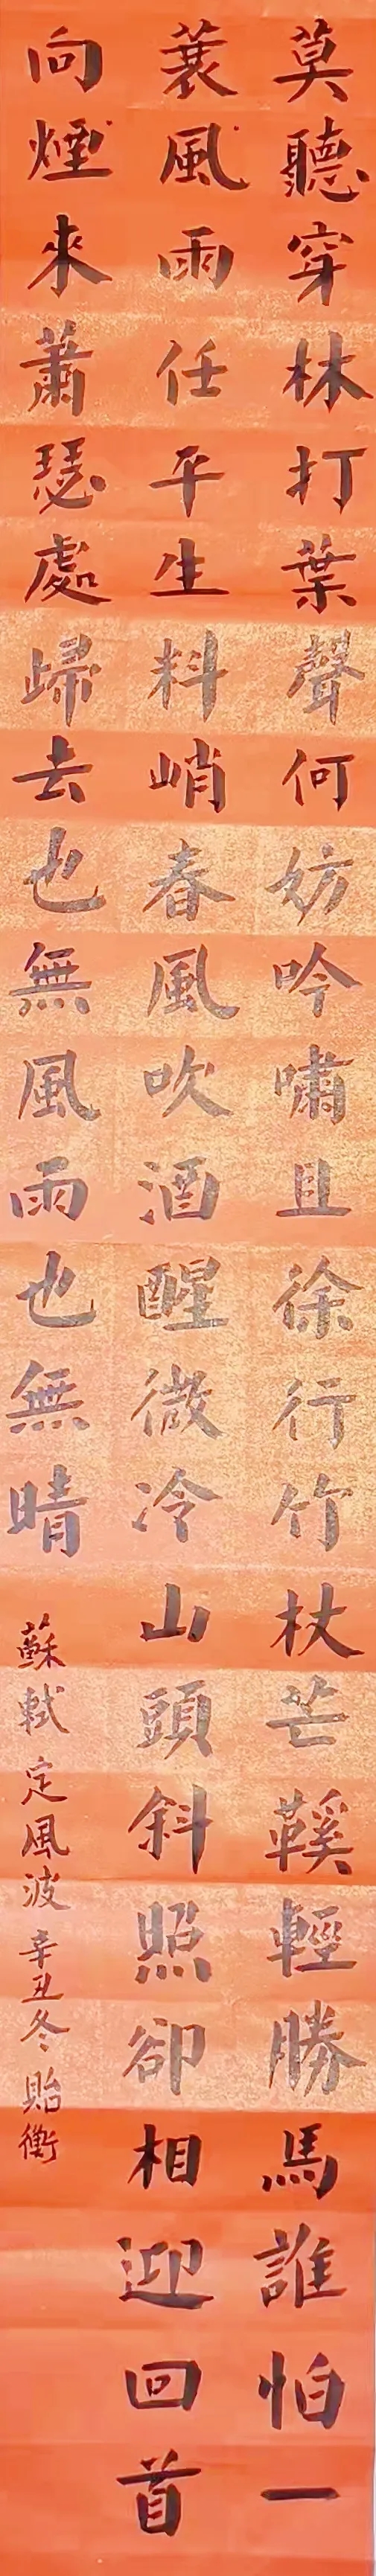 莫聽穿林打葉聲何妨吟嘯且徐行竹杖芒鞵輕勝馬誰怕一
蓑風雨任平生料峭春風吹酒醒微冷山頭斜照卻相迎回首
向煙來蕭瑟處歸去也無風雨也無晴
蘇軾定風波辛丑冬貽衡